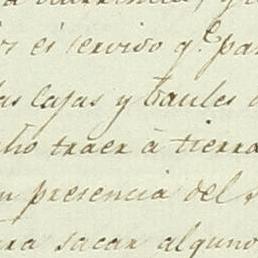 es servido q.e par
las cajas y baules
traer à tierra
presencia del
sacar alguno